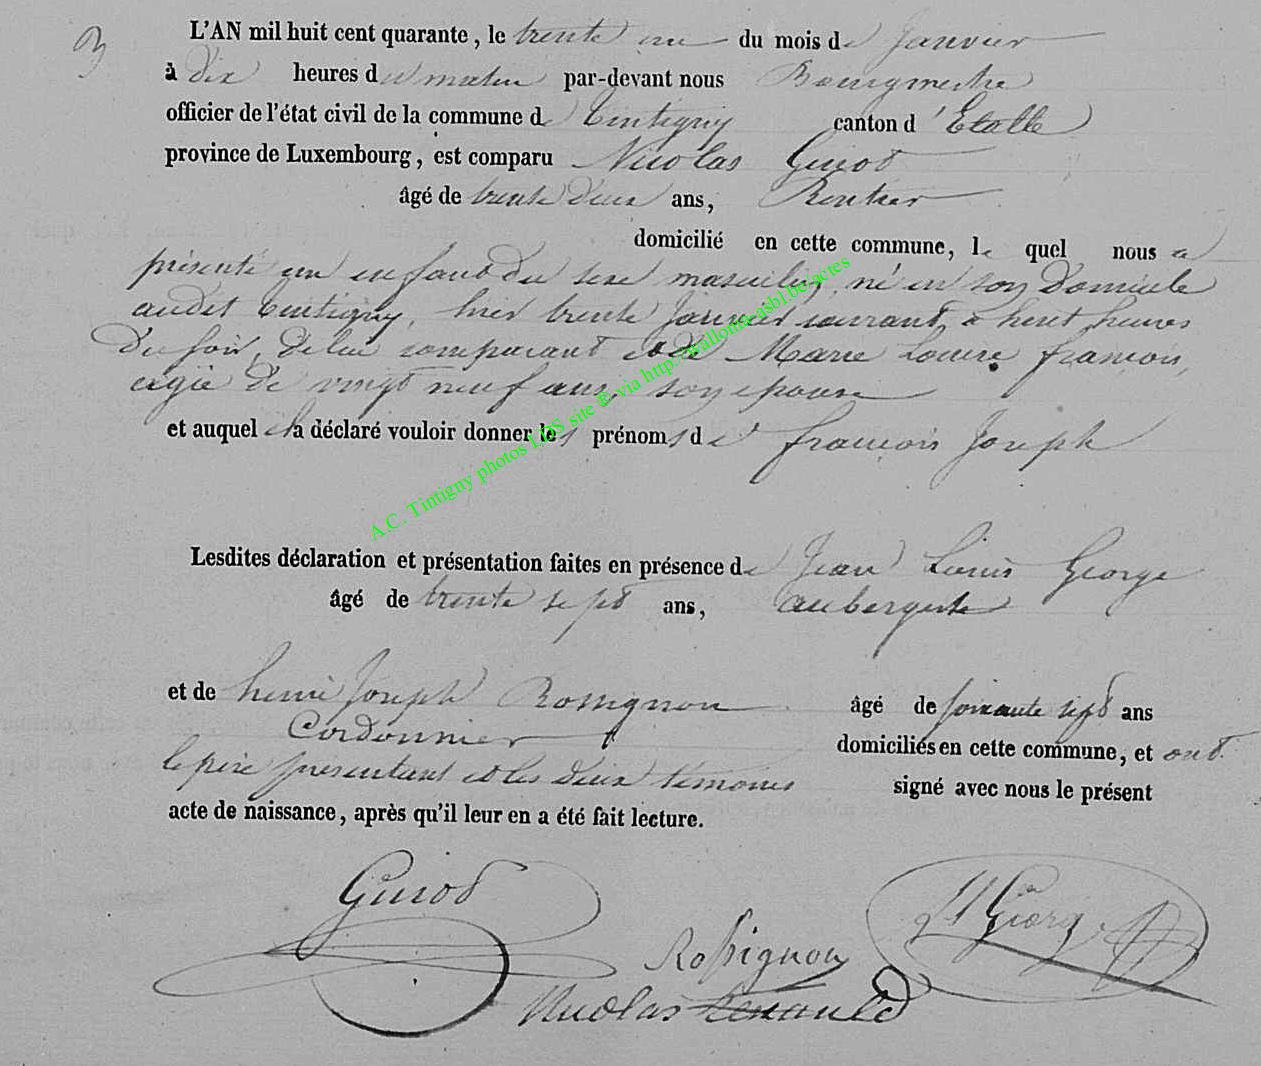 3
L'AN mil huit cent quarante, le trente un du mois de Janvier
à dix heures du matin par-devant nous Bourgmestre
officier de l'état civil de la commune de Tintigny canton d'Etalle
province de Luxembourg, est comparu Nicolas Guiot
âgé de trente deux ans, Rentier
domicilié en cette commune, le quel nous a
présenté un enfant du sexe masculin, né en son domicile
audit Tintigny, hier trente Janvier courant, à huit heures
du soir, de lui comparant et de Marie Louise françois,
agée de vingt neuf ans, son epouse
et auquel il a déclaré vouloir donner les prénoms de françois Joseph
Lesdites déclaration et présentation faites en présence de Jean Louis George
âgé de trente sept ans, aubergiste
et de henri Joseph Rossignon âgé de soixante sept ans
Cordonnier domiciliés en cette commune, et ont
le père présentant et les deux témoins signé avec nous le présent
acte de naissance, après qu'il leur en a été fait lecture.
Guiot
Georg
Rossignon
Nicolas Renauld
A.C. Tintigny photos LDS site @ via http://wallonia-asbl.be/actes